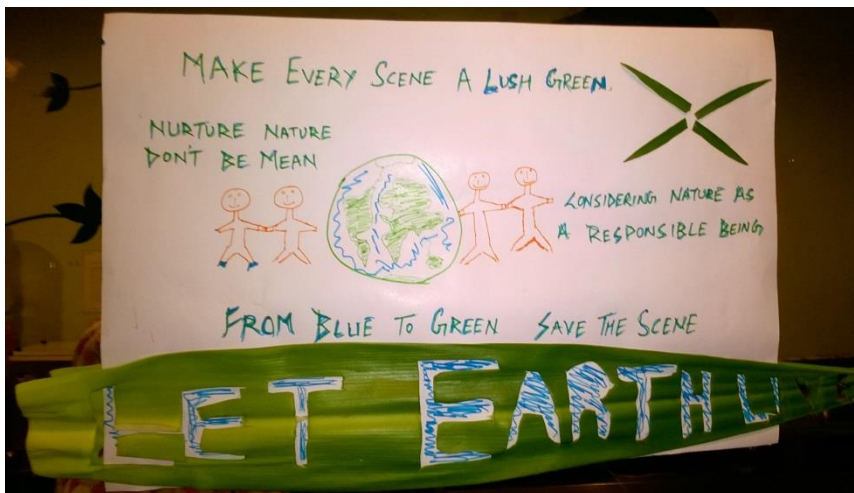 MAKE EVERY SCENE A LUSH GREEN.
NURTURE NATURE
DON'T BE MEAN
CONSIDERING NATURE AS
A RESPONSIBLE BEING
FROM BLUE TO GREEN SAVE THE SCENE
LET EARTH LIVE